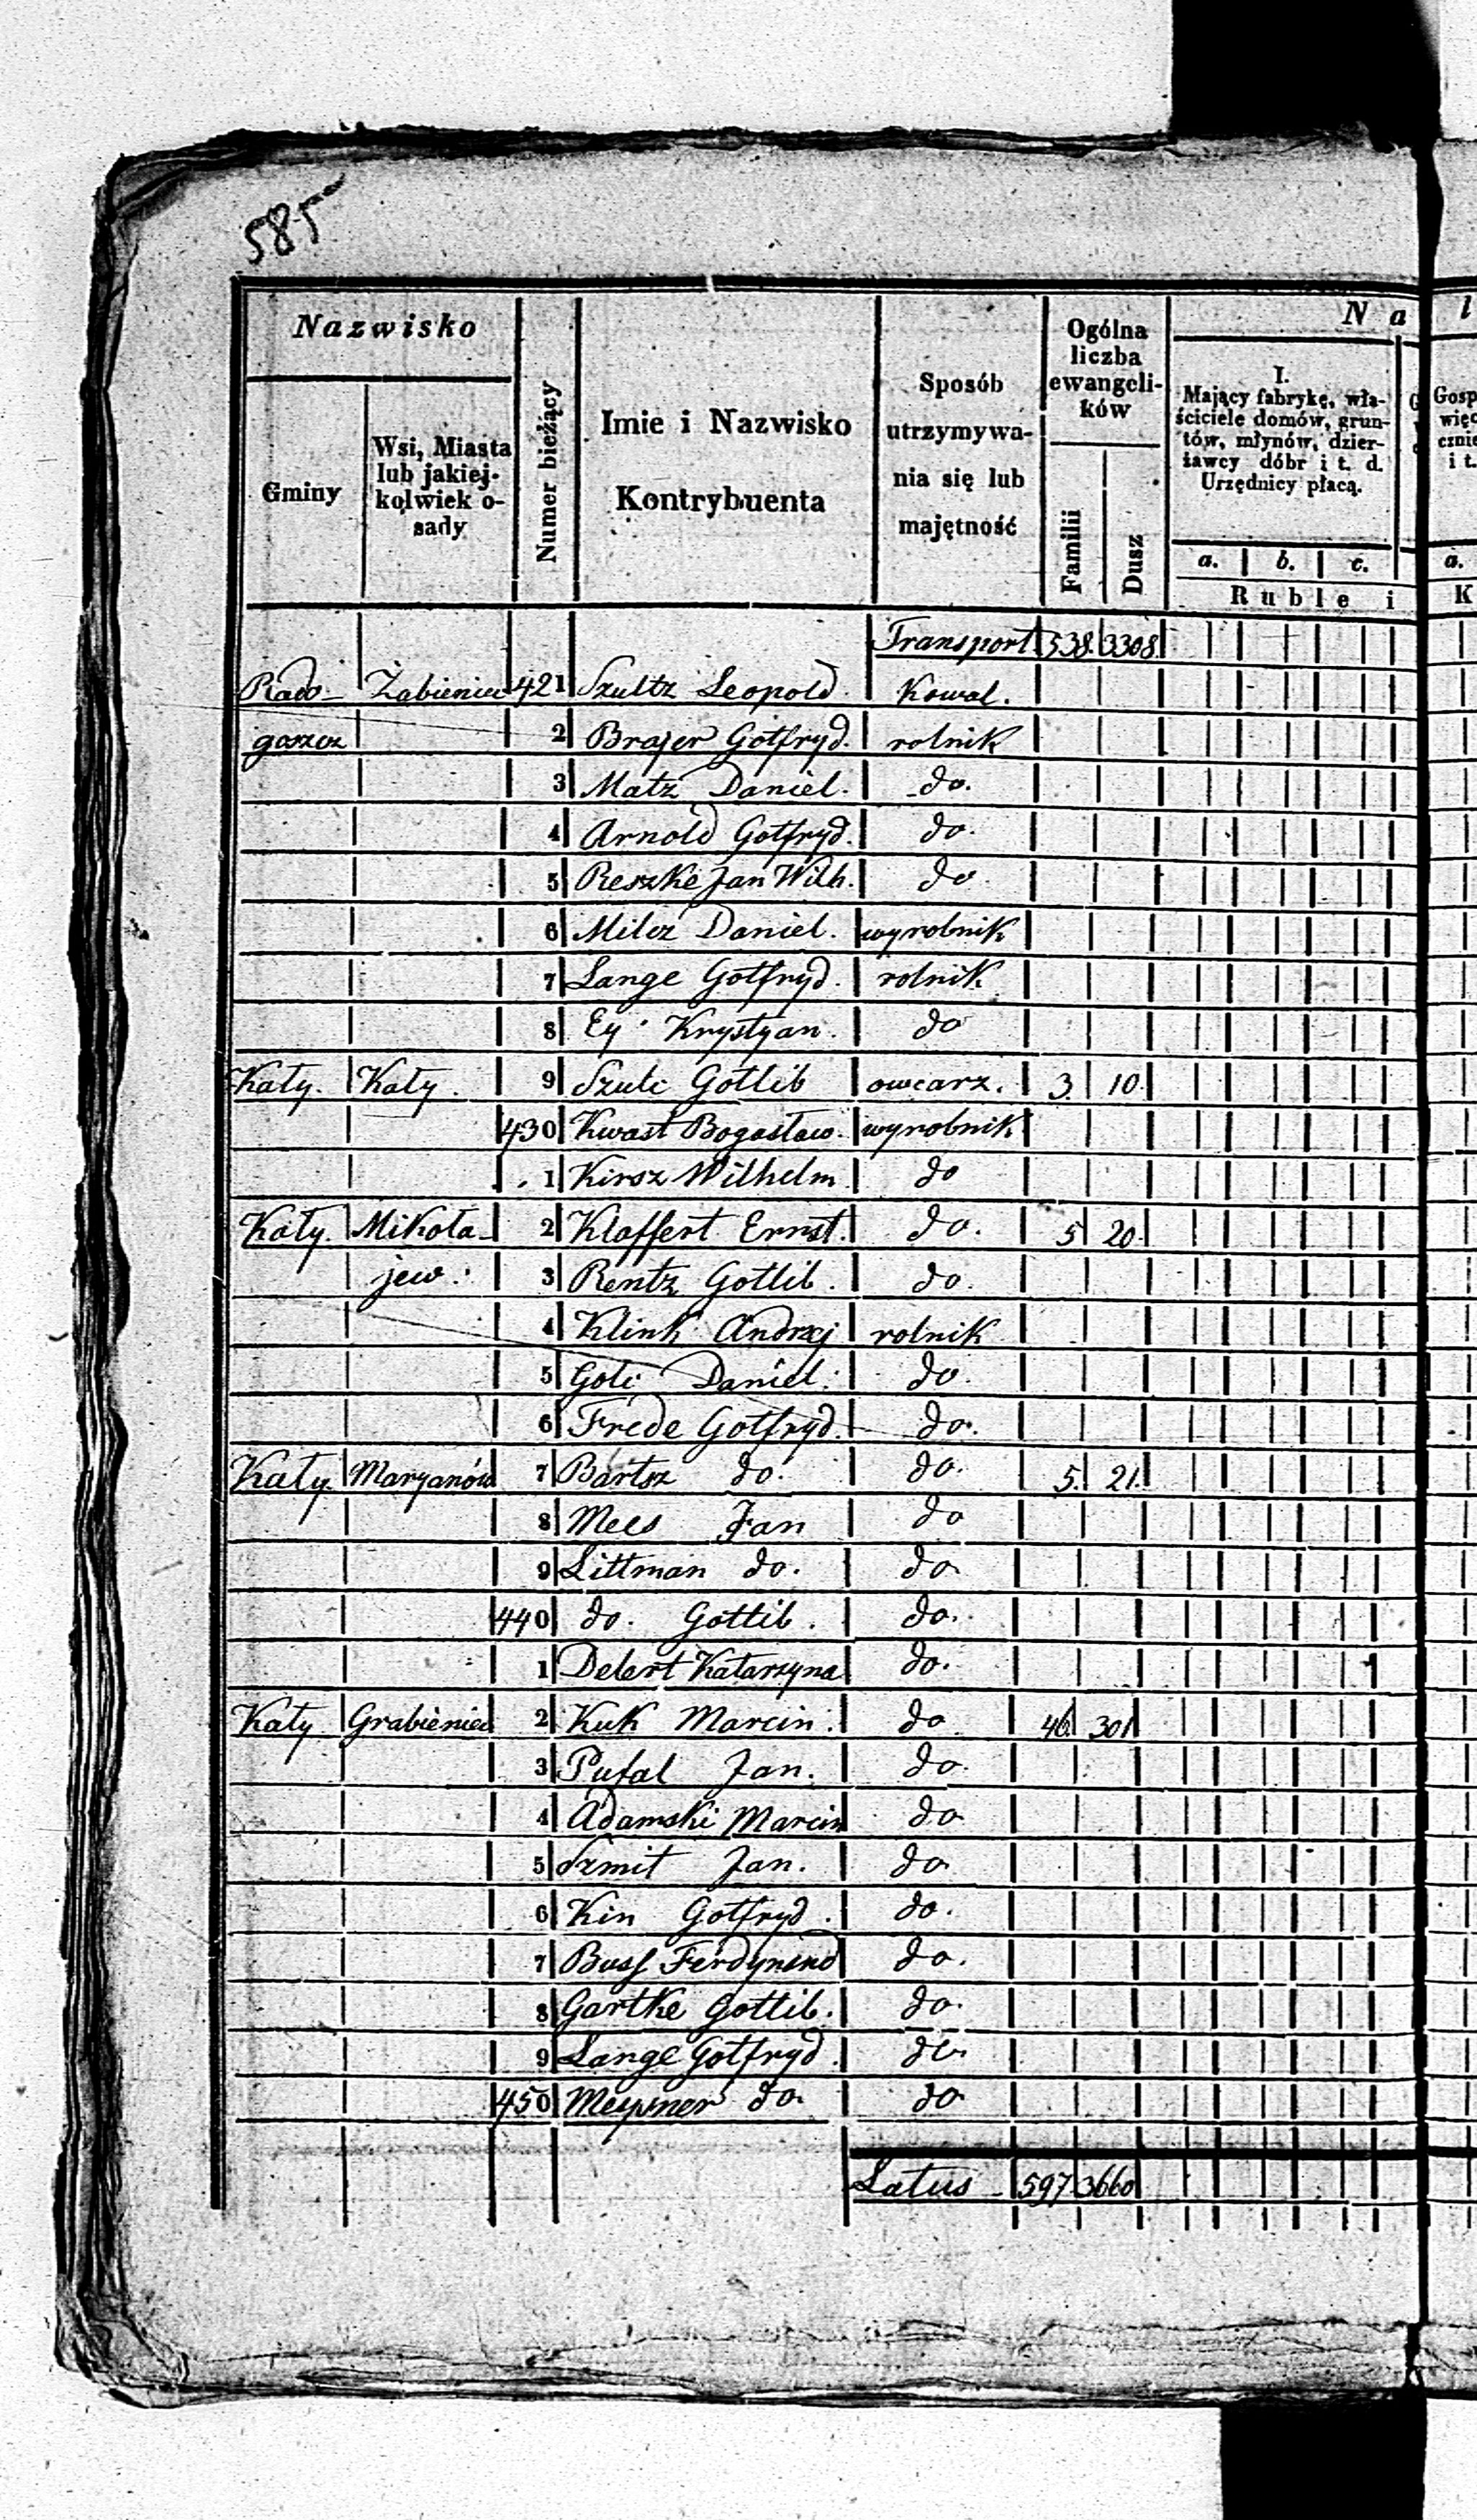 585
Nazwisko
Gminy
Wsi, Miasta
lub jakiej-
kolwiek o-
sady
Numer bieżący
Imie i Nazwisko
Kontrybuenta
Sposób
utrzymywa-
nia się lub
majętność
Ogólna
liczba
ewangeli-
ków
Familii
Dusz
N a l
I.
Mający fabrykę, wła-
ściciele domów, grun-
tów, młynów, dzier-
żawcy dóbr i t. d.
Urzędnicy płacą.
a. b. c.
Ruble i
Gosp
więc
cznie
i t.
a.
K
Transport 538 3308
Rado- Żabieniec 421 Szultz Leopold. Kowal.
goszcz 2 Brajer Gotfryd. rolnik
3 Matz Daniel. do.
4 Arnold Gotfryd. do.
5 Reszke Jan Wilh. do
6 Milcz Daniel. wyrobnik
7 Lange Gotfryd. rolnik
8 Ey Krystyan. do
Kąty. Kąty. 9 Szulc Gotlib owcarz. 3. 10.
430 Kwast Bogusław. wyrobnik
1 Kirsz Wilhelm do
Kąty. Mikoła- 2 Klaffert Ernst. do. 5 20.
jew. 3 Rentz Gotlib. do.
4 Klink Andrzej rolnik
5 Daniel. do.
6 Frede Gotfryd. do.
Kąty. Maryanów 7 Bartsz do. do. 5. 21.
8 Mees Jan do
9 Littman do. do
440 do. Gottlib. do.
1 Delert Katarzyna do.
Kąty Grabieniec 2 Kuk Marcin. do 46. 301
3 Pufal Jan. do.
4 Adamski Marcin do
5 Szmit Jan. do
6 Kin Gotfryd. do.
7 Buss Ferdynand do.
8 Gartke Gottlib. do.
9 Lange Gotfryd. do
450 do. do
Latus 597 3660